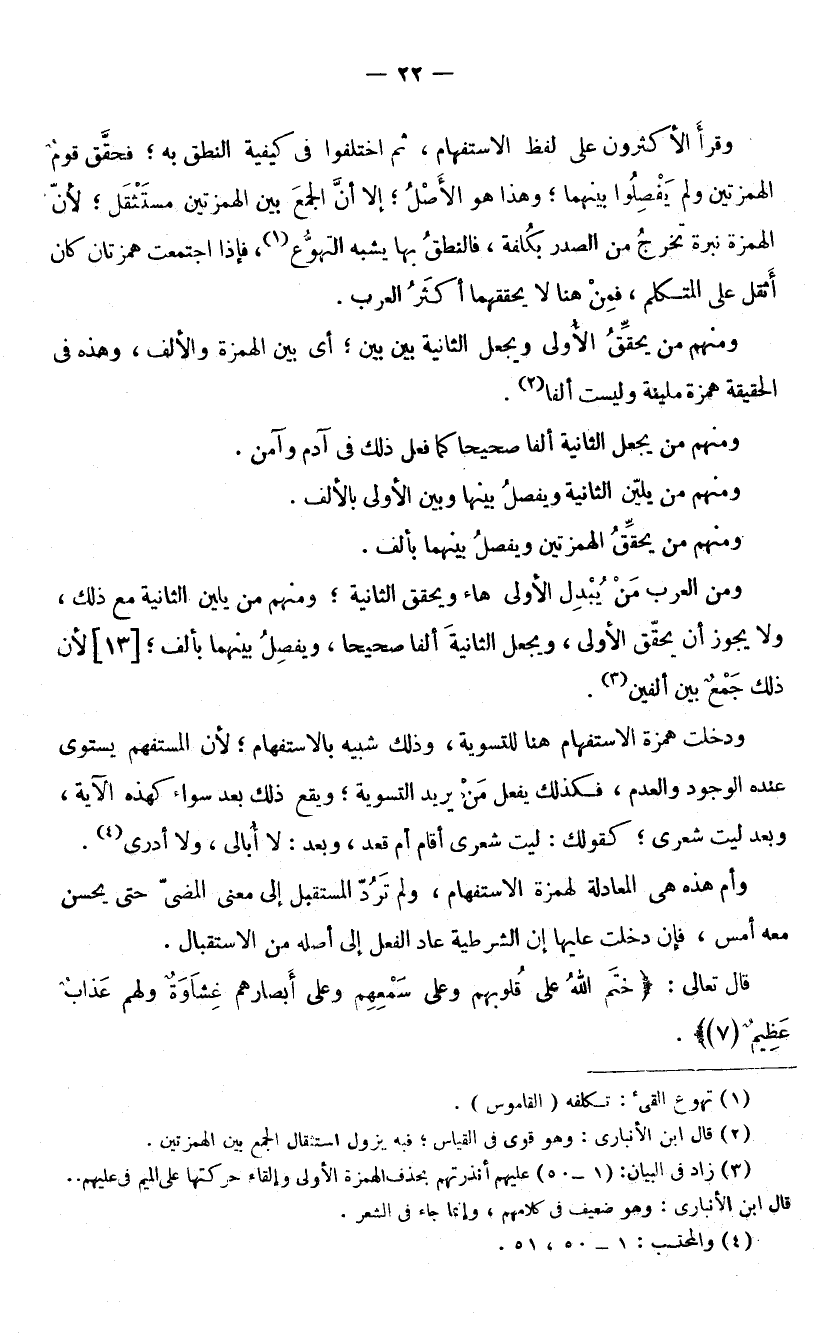 — ٢٢ —
وقرأَ الأكثرون على لفظ الاستفهام ، ثم اختلفوا فى كيفية النطق به ؛ فحقَّق قومٌ
الهمزتين ولم يَفْصِلُوا بينهما ؛ وهذا هو الأَصْلُ ؛ إلا أنَّ الجمعَ بين الهمزتين مستَثْقَل ؛ لأنّ
الهمزة نبرة تخرجُ من الصدر بكُلفة ، فالنطقُ بها يشبه التهوُّع(١)، فإذا اجتمعت همزتان كان
أثقل على المتكلم ، فمِنْ هنا لا يحققهما أكثَرُ العرب .
ومنهم من يحقِّقُ الأُولى ويجعل الثانية بين بين ؛ أى بين الهمزة والألف ، وهذه فى
الحقيقة همزة ملينة وليست ألفا(٢) .
ومنهم من يجعل الثانية ألفا صحيحا كما فعل ذلك فى آدم وآمن .
ومنهم من يليّن الثانية ويفصلُ بينها وبين الأولى بالألف .
ومنهم من يحقِّقُ الهمزتين ويفصلُ بينهما بألف .
ومن العرب مَنْ يُبْدِل الأولى هاء ويحقق الثانية ؛ ومنهم من يلين الثانية مع ذلك ،
ولا يجوز أن يحقّق الأولى ، ويجعل الثانيةَ ألفا صحيحا ، ويفصِلُ بينهما بألف ؛ [١٣] لأن
ذلك جَمْعٌ بين ألفين(٣) .
ودخلت همزة الاستفهام هنا للتسوية ، وذلك شبيه بالاستفهام ؛ لأن المستفهم يستوى
عنده الوجود والعدم ، فكذلك يفعل مَنْ يريد التسوية ؛ ويقع ذلك بعد سواء كهذه الآية ،
وبعد ليت شعرى ؛ كقولك : ليت شعرى أقام أم قعد ، وبعد : لا أُبالى ، ولا أدرى(٤) .
وأم هذه هى المعادلة لهمزة الاستفهام ، ولم تَرُدّ المستقبل إلى معنى المضىّ حتى يحسن
معه أمس ، فإن دخلت عليها إن الشرطية عاد الفعل إلى أصله من الاستقبال .
قال تعالى : ﴿ ختَم اللهُ على قُلوبهم وعلى سَمْعِهِم وعلى أَبصارهم غِشاوَةٌ ولهم عَذابٌ
عَظِيمٌ (٧)﴾ .
(١) تهوع القىء : تكلفه ( القاموس ) .
(٢) قال ابن الأنبارى : وهو قوى فى القياس ؛ فبه يزول استثقال الجمع بين الهمزتين .
(٣) زاد فى البيان: (١ – ٥٠) عليهم أنذرتهم بحذف الهمزة الأولى وإلقاء حركتها على الميم فى عليهم..
قال ابن الأنبارى : وهو ضعيف فى كلامهم ، وإنما جاء فى الشعر .
(٤) والمحتسب : ١ – ٥٠ ، ٥١ .